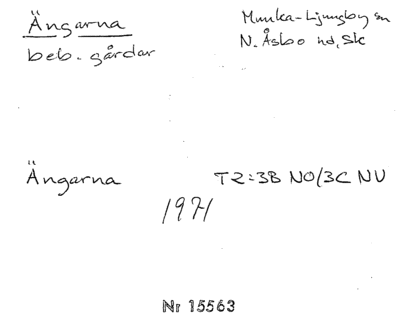 Ängarna
Munka-Ljungby sn
beb. gårdar
N. Åsbo hd, Sk
Ängarna
T2:3B NO/3C NV
1971
Nr 15563